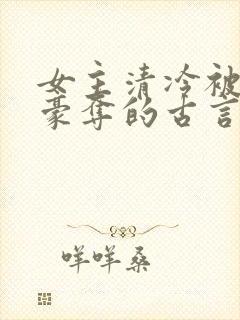 女主清冷被
豪夺的古言
咩咩桑